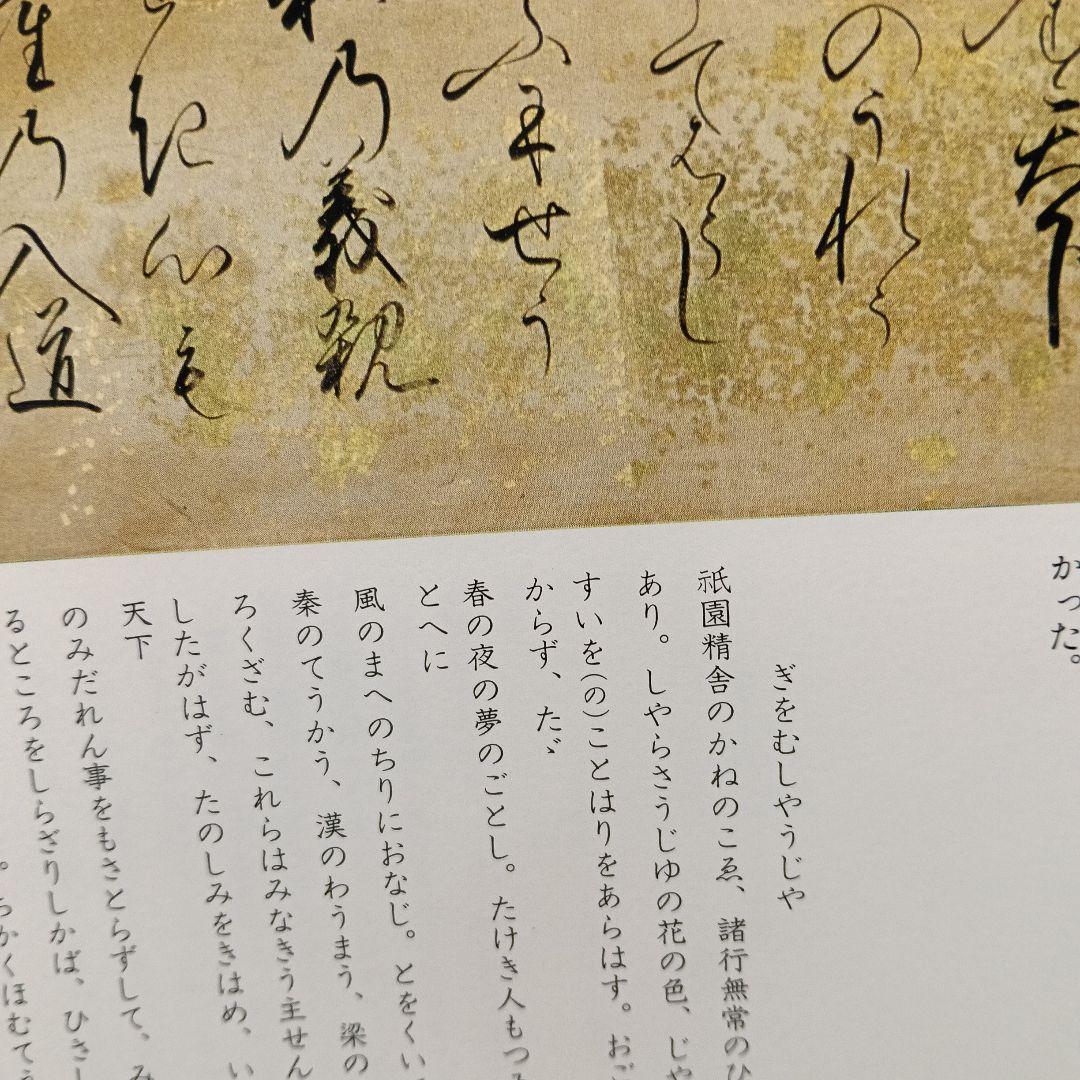 天下
のうれう
てはうし
せう
乃義親
き心も
乃入道
かった。
ぎをむしやうじや
祇園精舎のかねのこゑ、諸行無常のひ
あり。しやらさうじゆの花の色、じや
すいを(の)ことはりをあらはす。おご
からず、たゞ
春の夜の夢のごとし。たけき人もつ
とへに
風のまへのちりにおなじ。とをくい
秦のてうかう、漢のわうまう、梁の
ろくざむ、これらはみなきう主せん
したがはず、たのしみをきはめ、い
天下
のみだれん事をもさとらずして、み
るところをしらざりしかば、ひさし
。ちかくほむてう